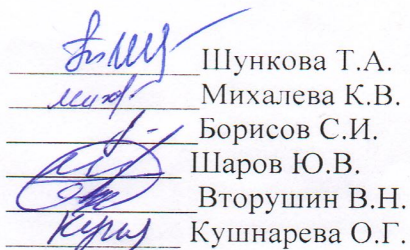 Шункова Т.А.
Михалева К.В.
Борисов С.И.
Шаров Ю.В.
Вторушин В.Н.
Кушнарева О.Г.